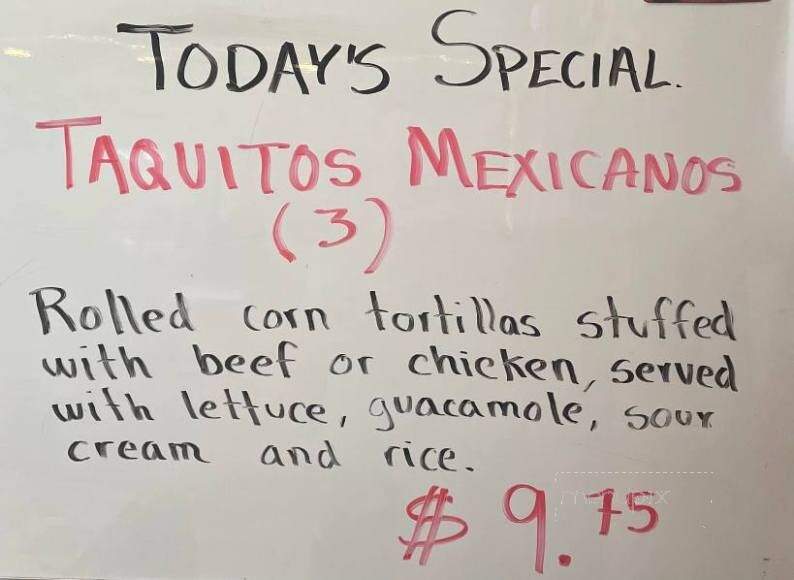 TODAY'S SPECIAL.
TAQUITOS MEXICANOS
(3)
Rolled corn tortillas stuffed
with beef or chicken, served
with lettuce, guacamole, sour
cream and rice.
$9.75